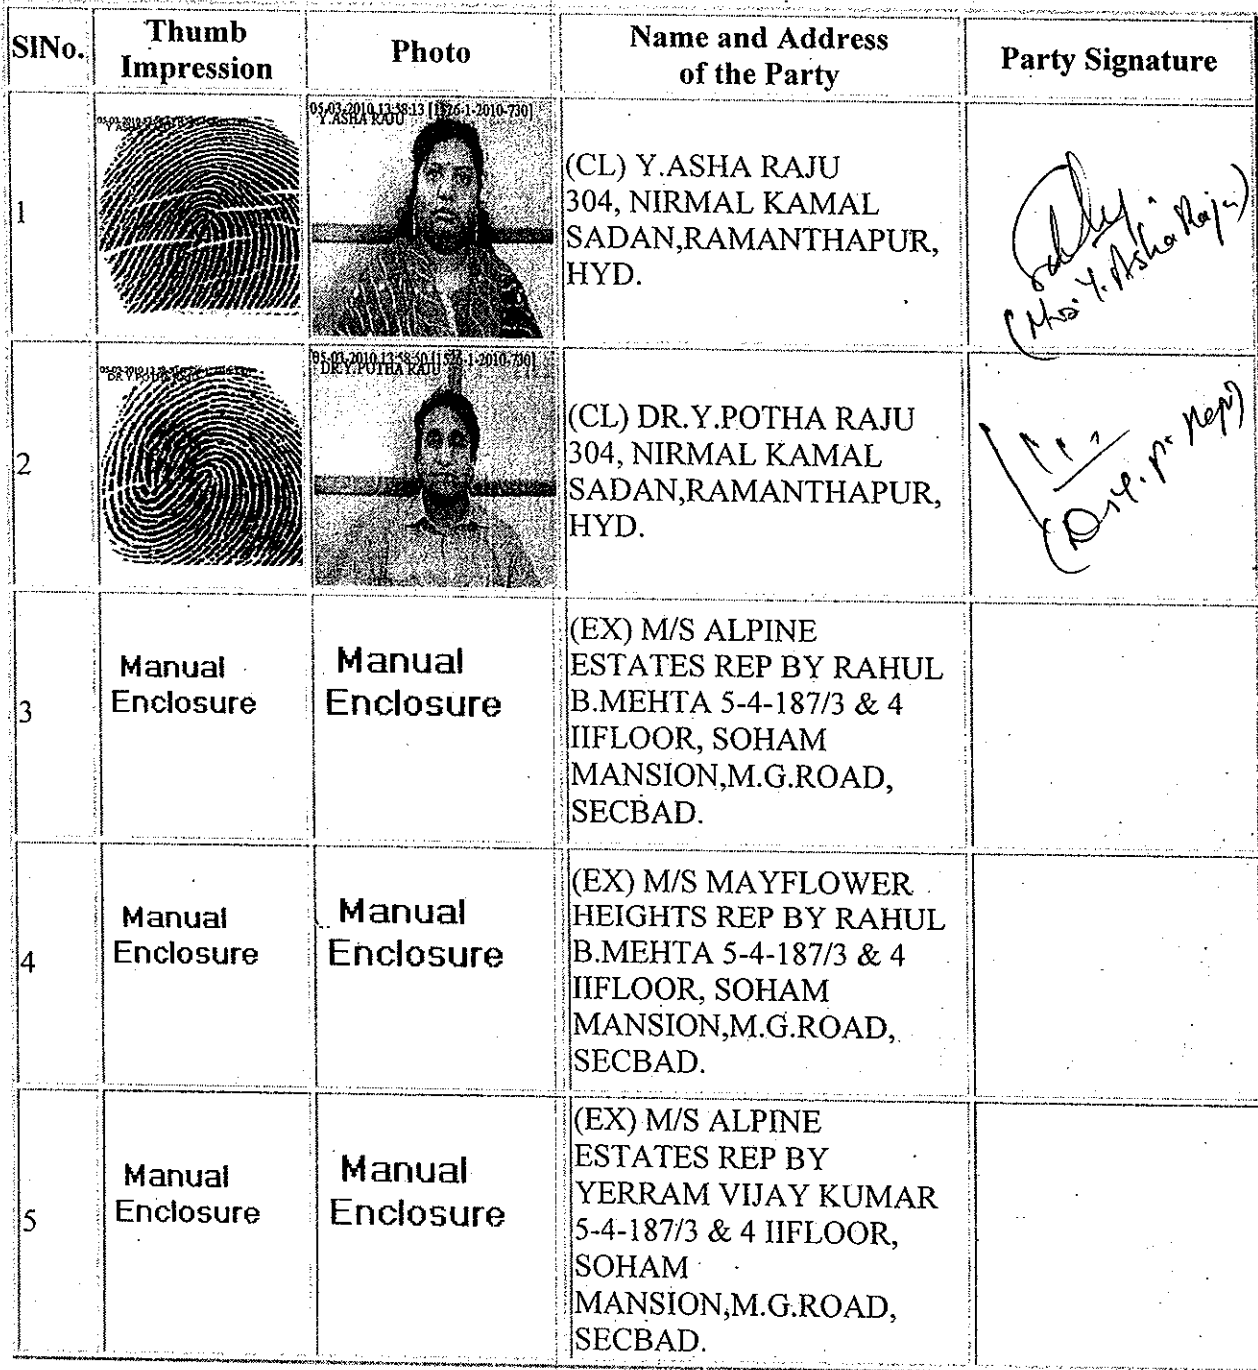 SlNo.
Thumb
Impression
Photo
Name and Address
of the Party
Party Signature
1
05-03-2010 13:58:13 [1526-1-2010-730]
Y.ASHA RAJU
(CL) Y.ASHA RAJU
304, NIRMAL KAMAL
SADAN,RAMANTHAPUR,
HYD.
(Mrs. Y. Asha Raju)
2
05-03-2010 13:58:50 [1526-1-2010-730]
DR.Y.POTHA RAJU
(CL) DR.Y.POTHA RAJU
304, NIRMAL KAMAL
SADAN,RAMANTHAPUR,
HYD.
3
Manual
Enclosure
Manual
Enclosure
(EX) M/S ALPINE
ESTATES REP BY RAHUL
B.MEHTA 5-4-187/3 & 4
IIFLOOR, SOHAM
MANSION,M.G.ROAD,
SECBAD.
4
Manual
Enclosure
Manual
Enclosure
(EX) M/S MAYFLOWER
HEIGHTS REP BY RAHUL
B.MEHTA 5-4-187/3 & 4
IIFLOOR, SOHAM
MANSION,M.G.ROAD,
SECBAD.
5
Manual
Enclosure
Manual
Enclosure
(EX) M/S ALPINE
ESTATES REP BY
YERRAM VIJAY KUMAR
5-4-187/3 & 4 IIFLOOR,
SOHAM
MANSION,M.G.ROAD,
SECBAD.